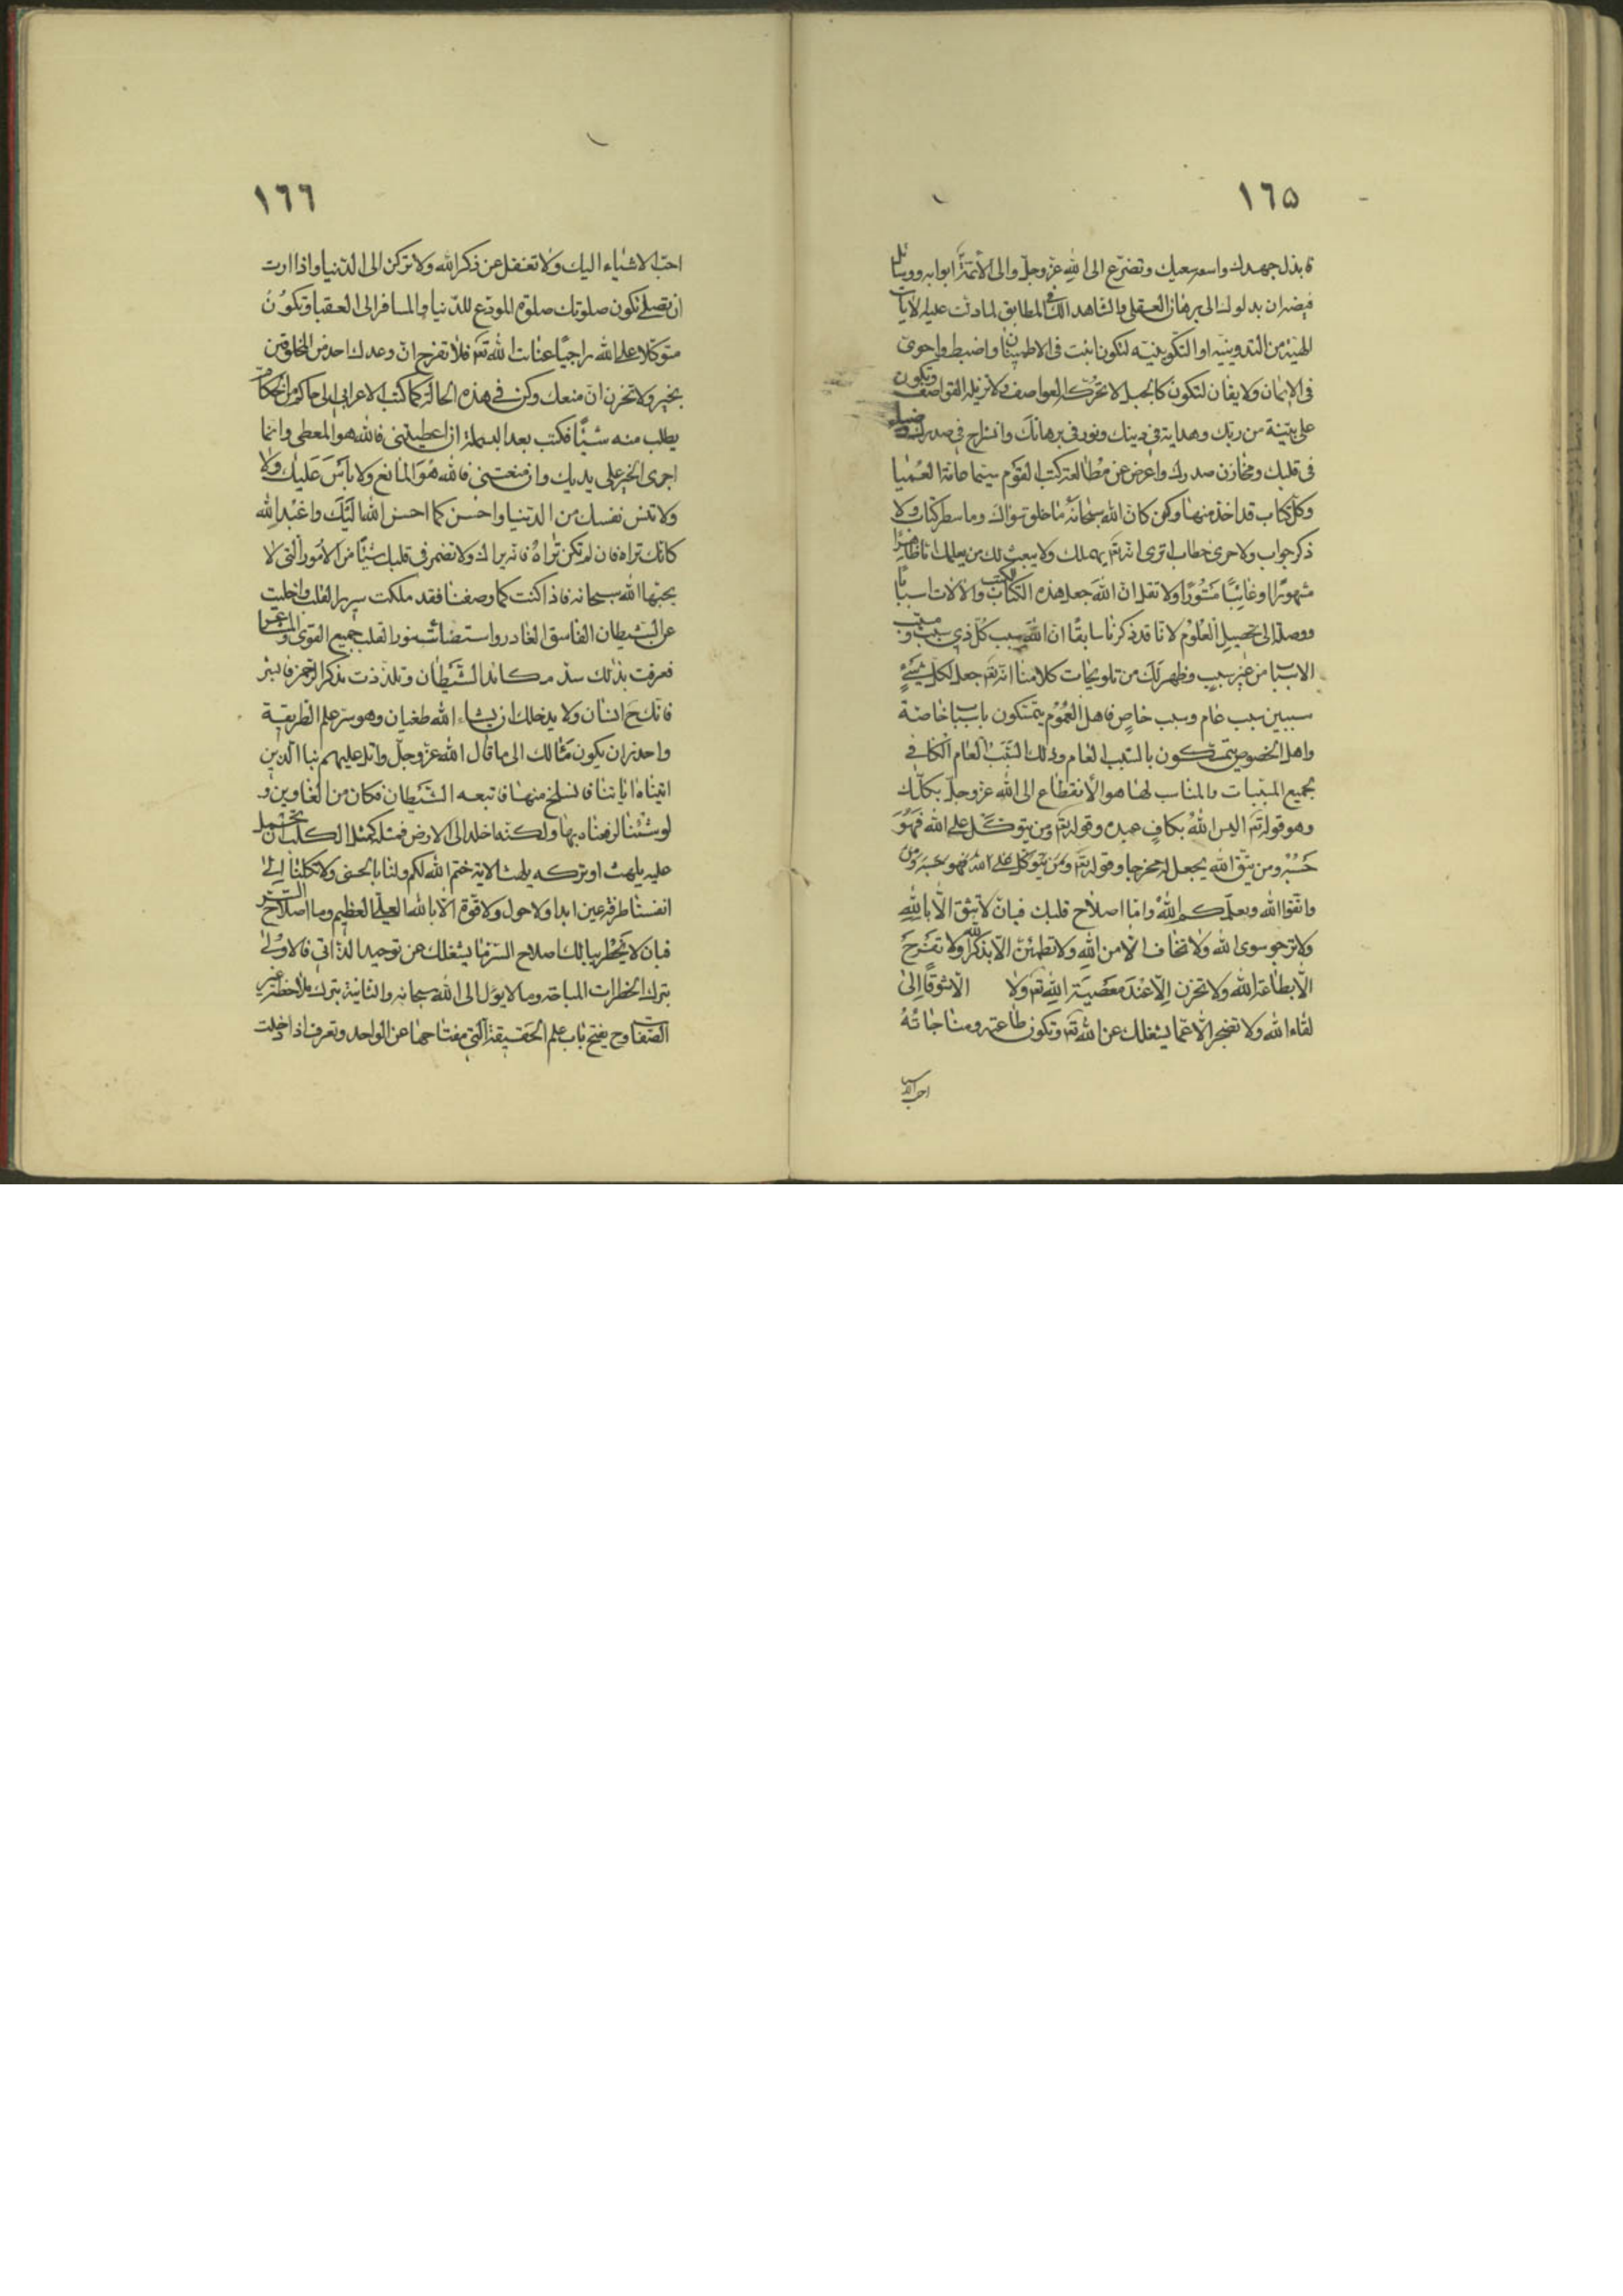 ١٦٥
فابذل جهدك واسع سعيك وتضرع الى الله عز وجل والى الأئمة ابوابه ووسائل
فيضه ان يدلوك الى برهان العقلى والشاهد المطابق لما دلت عليه الايات
الهيّة من التدوينيّة او التكوينيّة لتكون اثبت فى الاطمينان واضبط واحوى
فى الايمان والايقان لتكون كالجبل لا تحركه العواصف ولا تزيله القواصف وتكون
على بيّنة من ربك وهداية فى دينك ونور فى برهانك وانشراح فى صدرك وضياء
فى قلبك ومخازن صدرك واعرض عن مطالعة كتب القوم سيّما هذه العميا
وكل كتاب قد اخذ منها وكن كان الله سبحانه ما خلق سواك وما سطر كتاب ولا
ذكر جواب ولا جرى خطاب اترى انه تعم يهملك ولا يبعث لك من يعلمك اما ظاهرًا
مشهورًا او غائبًا مستورًا ولا تقل ان الله جعل هذه الكتب والالات اسبابًا
ووصلة الى تحصيل العلوم لانّا قد ذكرنا سابقًا ان الله سبب كل ذي سبب ومسبب
الاسباب من غير سبب وظهر لك من تلويحات كلامنا انه تعم جعل لكل شيءٍ
سببين سبب عام وسبب خاص فاهل العموم يتمسكون باسباب خاصة
واهل الخصوص يتمسكون بالسبب العام وذلك السبب العام الكافي
بجميع المسببات والمناسب لها هو الانقطاع الى الله عز وجل بكلّك
وهو قوله تعم اليس الله بكافٍ عبده وقوله تعم ومن يتوكل على الله فهو
حسبه ومن يتّق الله يجعل له مخرجا وقوله تعم ومن يتوكل على الله فهو حسبه ومن
واتقوا الله ويعلّمكم الله وامّا اصلاح قلبك فبان لا تثق الّا بالله
ولا ترجو سوى الله ولا تخاف الّا من الله ولا تطمئن الّا بذكر الله ولا تفرح
الّا بطاعة الله ولا تحزن الّا عند معصية الله تعم ولا الّا شوقًا الى
لقاء الله ولا تضجر الّا عمّا يشغلك عن الله تعم وتكون طاعته ومناجاته
احب الاشيا
١٦٦
احبّ الاشياء اليك ولا تغفل عن ذكر الله ولا تركن الى الدنيا واذا اردت
ان تصلى تكون صلوتك صلوة المودّع للدنيا والمسافر الى العقبا وتكون
متوكلا على الله راجيًا عنايت الله تعم فلا تفرح ان وعدك احد من المخلوقين
بخير ولا تحزن ان منعك وكن في هذه الحالة كما كتب الاعرابى الى حاكم من الحكام
يطلب منه شيئًا فكتب بعد البسملة ان اعطيتنى فالله هو المعطى وانما
اجرى الخير على يديك وان منعتنى فالله هو المانع ولا بأس عليك ولا
ولا تنس نفسك من الدنيا واحسن كما احسن الله اليك واعبد الله
كانك تراه فان لم تكن تراه فانه يراك ولا تضمر في قلبك شيئًا من الامور التى لا
يحبّها الله سبحانه فاذا كنت كما وصفنا فقد ملكت سرير القلب واخليت
عن الشيطان الفاسق الغادر واستضاءت بنور القلب جميع القوى والمشاعر
فعرفت بذلك سدّ مكائد الشيطان وتلذذت بذكر الرحمن فابشر
فانك ح انسان ولا يدخلك ان يشاء الله طغيان وهو سر علم الطريقة
واحذر ان يكون مثالك الى ما قال الله عز وجل واتل عليهم نبا الذين
اتيناه اياتنا فانسلخ منها فاتبعه الشيطان فكان من الغاوين و
لو شئنا لرفعناه بها ولكنه اخلد الى الارض فمثله كمثل الكلب ان تحمل
عليه يلهث او تتركه يلهث الاية ختم الله لكم ولنا بالحسنى ولا تكلنا الى
انفسنا طرفة عين ابدا ولا حول ولا قوة الا بالله العلى العظيم وما اصلاح السّر
فبان لا يخطر ببالك اصلاح السّر ما يشغلك عن توحيد الذاتى فالاولى
بترك الخطرات المباحة وما لا يؤل الى الله سبحانه والثانية بترك ملاحظة غير
الصفات وح يفتح باب علم الحقيقة التى مفتاحها عن الواحد وتعرف اذا دخلت